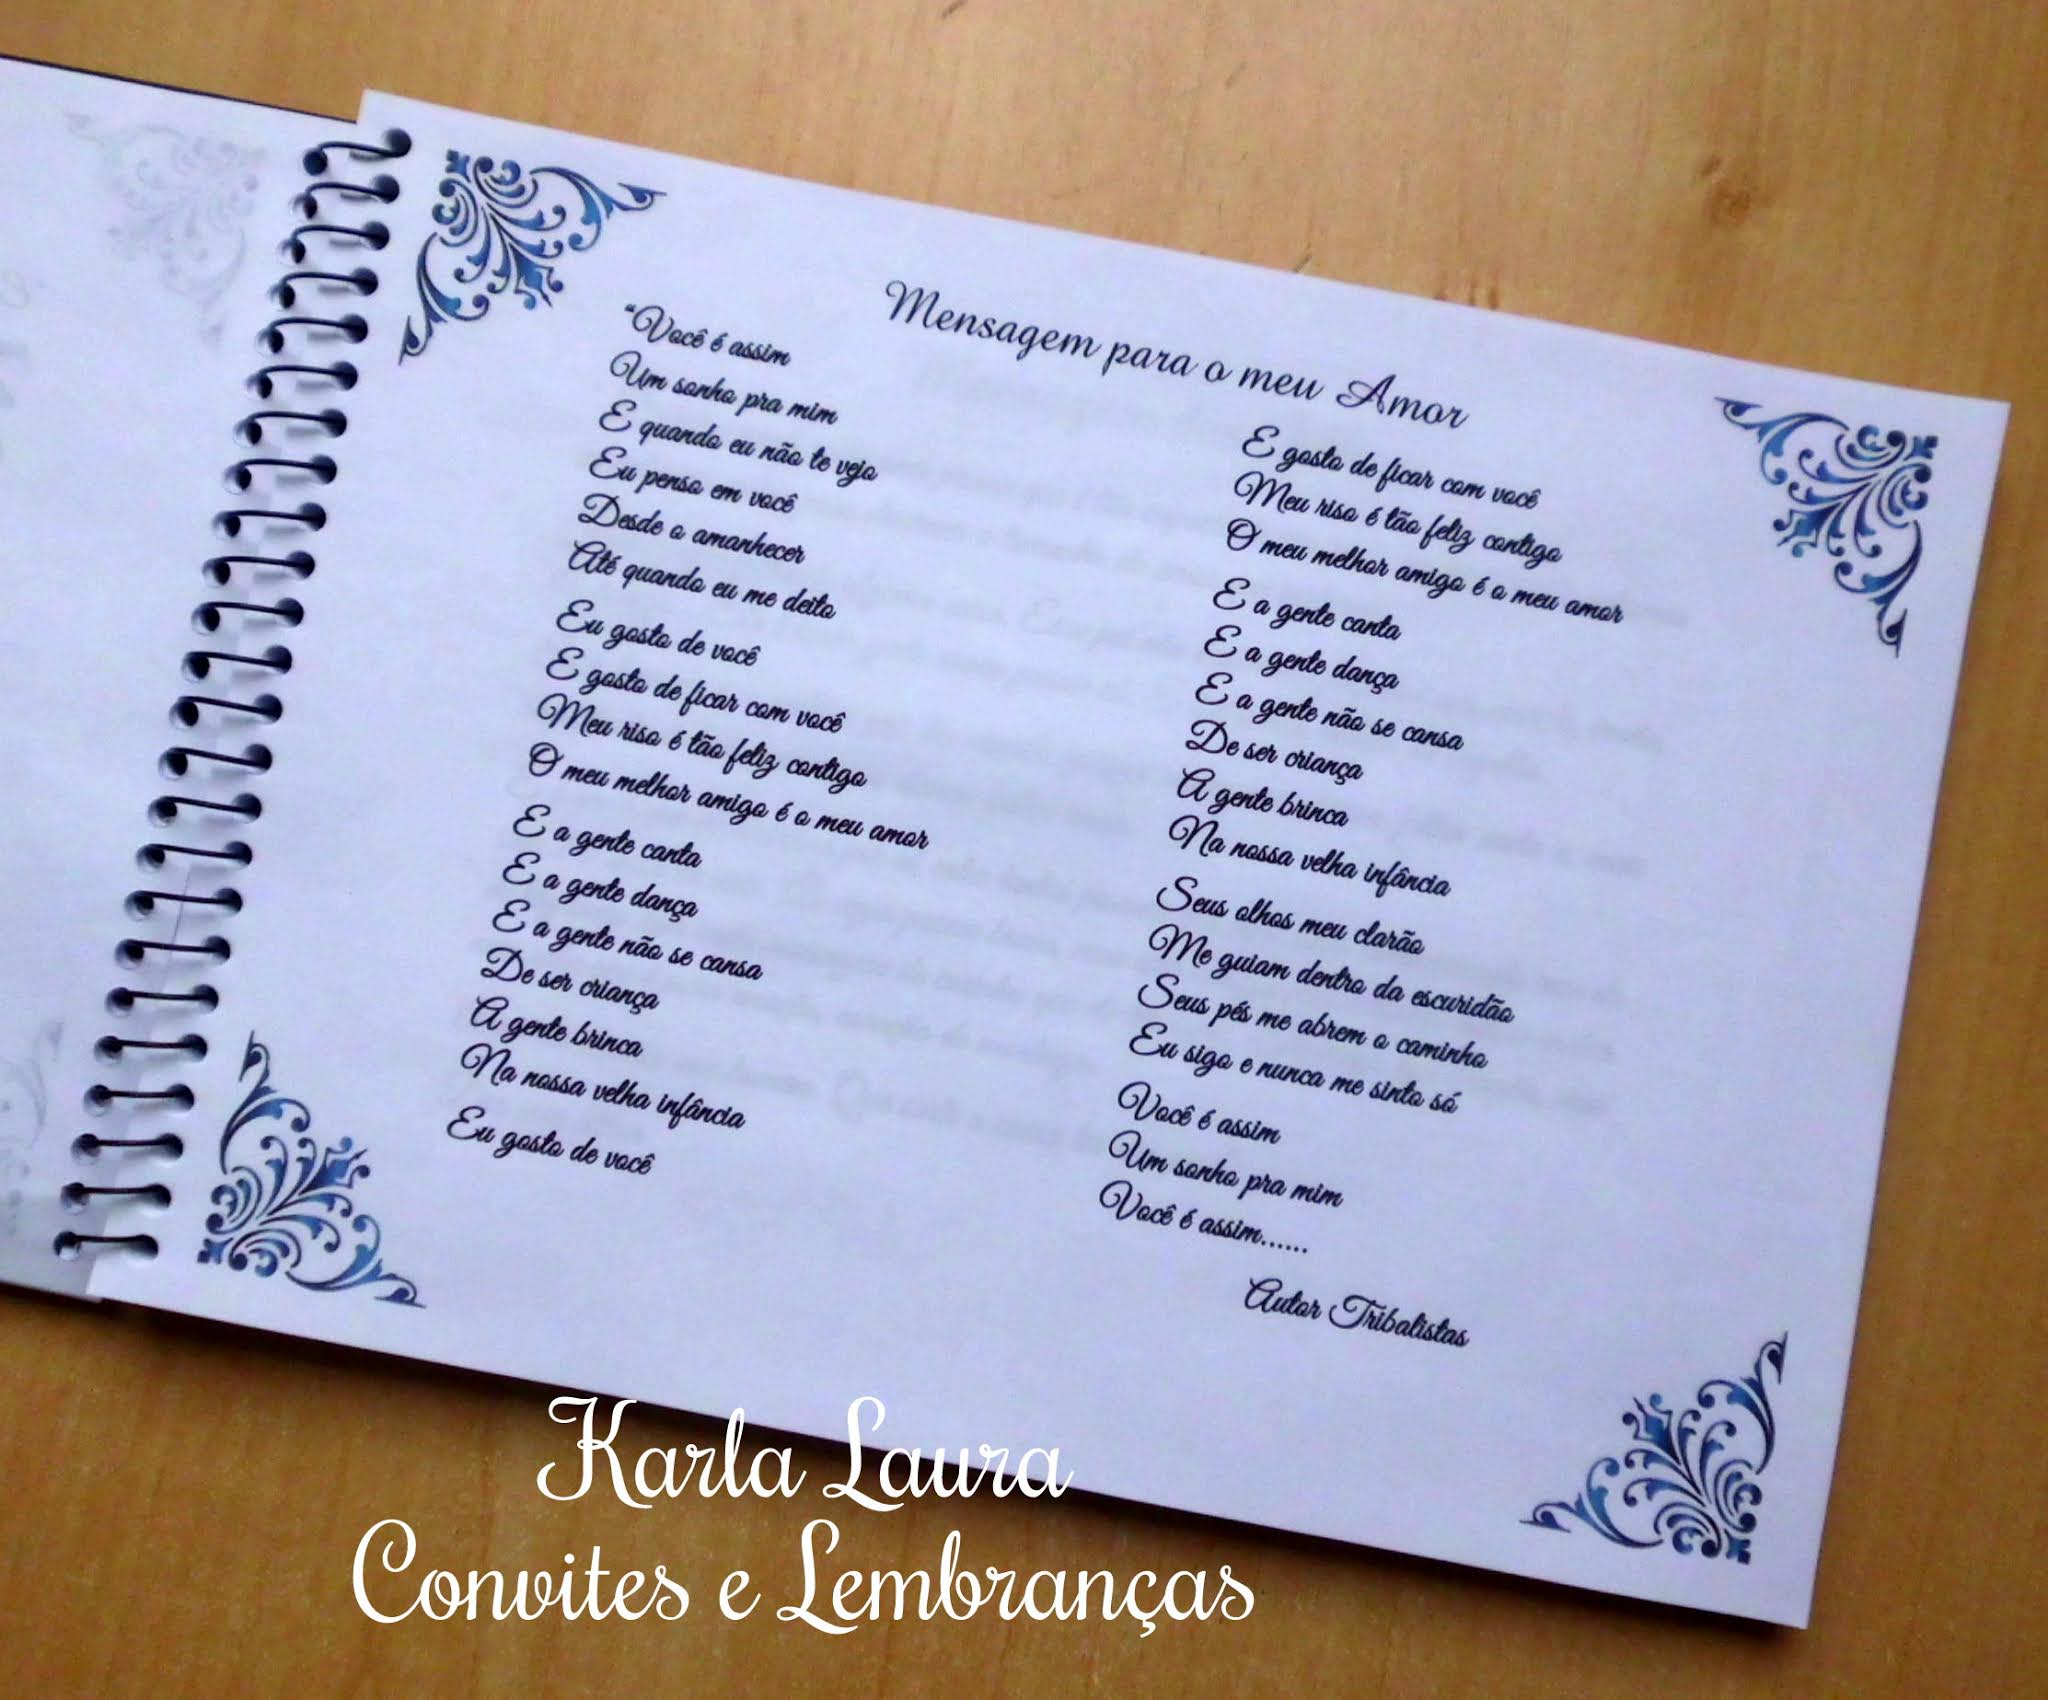 Mensagem para o meu Amor
"Você é assim
Um sonho pra mim
E quando eu não te vejo
Eu penso em você
Desde o amanhecer
Até quando eu me deito
Eu gosto de você
E gosto de ficar com você
Meu riso é tão feliz contigo
O meu melhor amigo é o meu amor
E a gente canta
E a gente dança
E a gente não se cansa
De ser criança
A gente brinca
Na nossa velha infância
Eu gosto de você
E gosto de ficar com você
Meu riso é tão feliz contigo
O meu melhor amigo é o meu amor
E a gente canta
E a gente dança
E a gente não se cansa
De ser criança
A gente brinca
Na nossa velha infância
Seus olhos meu clarão
Me guiam dentro da escuridão
Seus pés me abrem o caminho
Eu sigo e nunca me sinto só
Você é assim
Um sonho pra mim
Você é assim......
Autor Tribalistas
Karla Laura
Convites e Lembranças